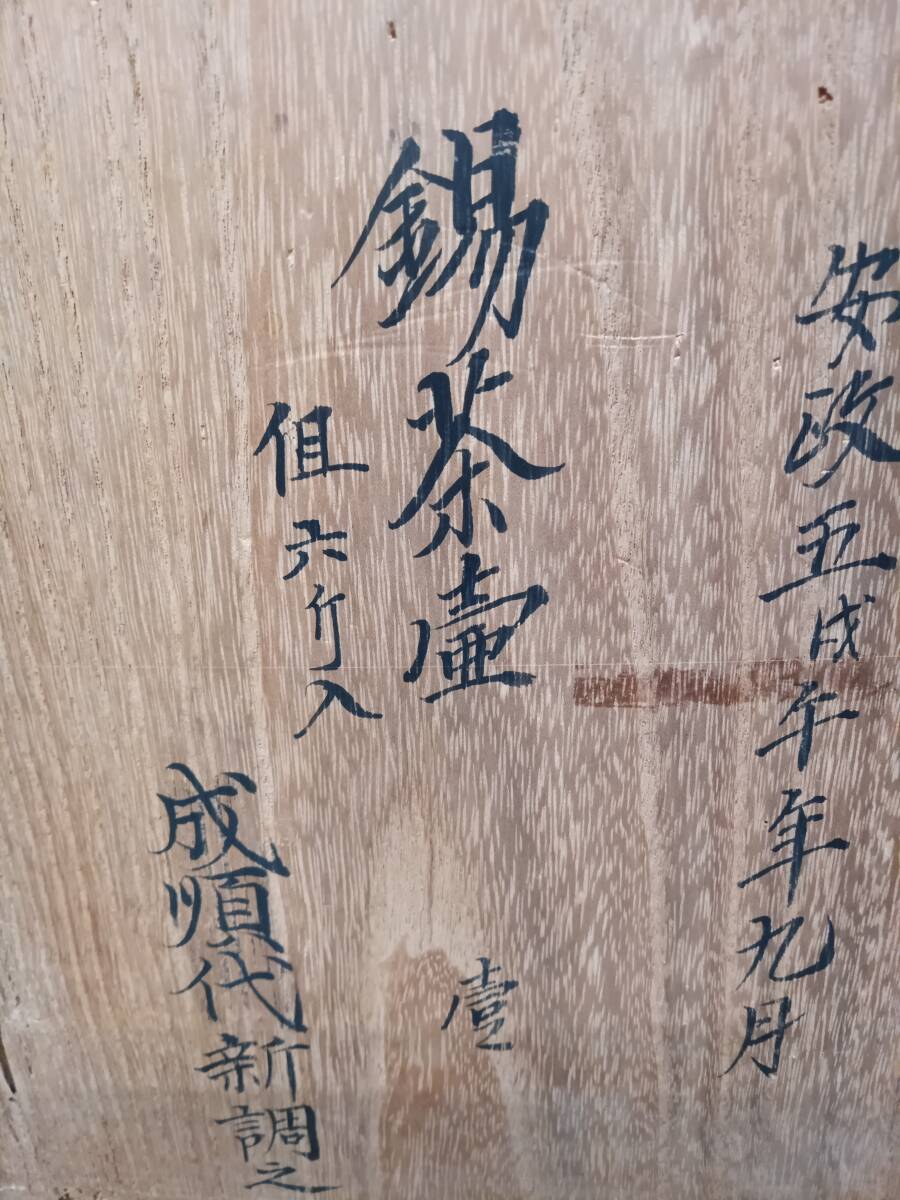 安政五戊午年九月
錫茶壷 壹
但六斤入
成順代新調之